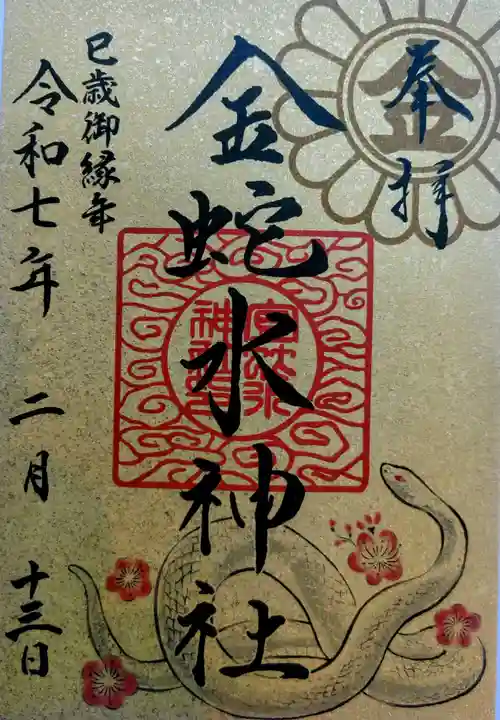 奉拝
金
金蛇水神社
巳歳御縁年
令和七年 二月 十三日